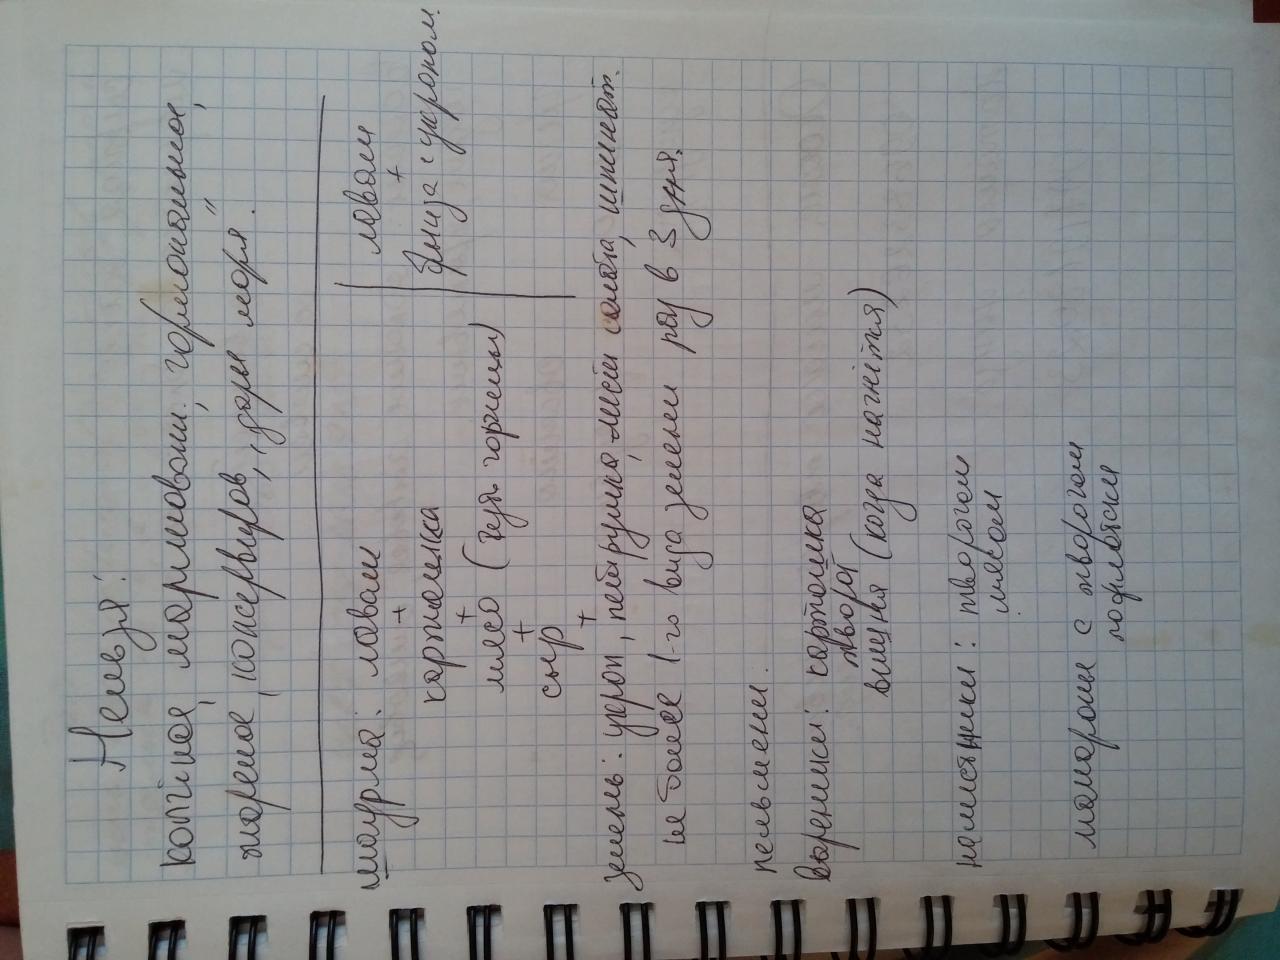 Нельзя:
копчёное, маринованн. гормональное,
жареное, консервиров, "дары моря".
шаурма: лаваш
+
картошка
+
мясо (чуть горчицы)
+
сыр
+
лаваш
+
яйца с укропом.
зелень: укроп, петрушка, листья салата, шпинат.
не более 1-го вида зелени раз в 3 дня.
пельмени.
вареники: картошка
творог
вишня (когда начнётся)
налистники: творогом
мясом
макароны с творогом